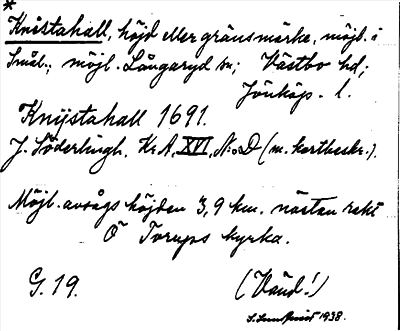 *
Knistahall, höjd eller gränsmärke, möjl. i
Smål.; möjl. Långaryd sn; Västbo hd;
Jönköp. l.
Knijstahall 1691.
J. Söderlingh. Kr. A. XVI, N:o D (m. kartbeskr.).
Möjl. avsågs höjden 3,9 km. nästan rakt
Ö Torups kyrka.
G. 19. (Vänd!)
1938.